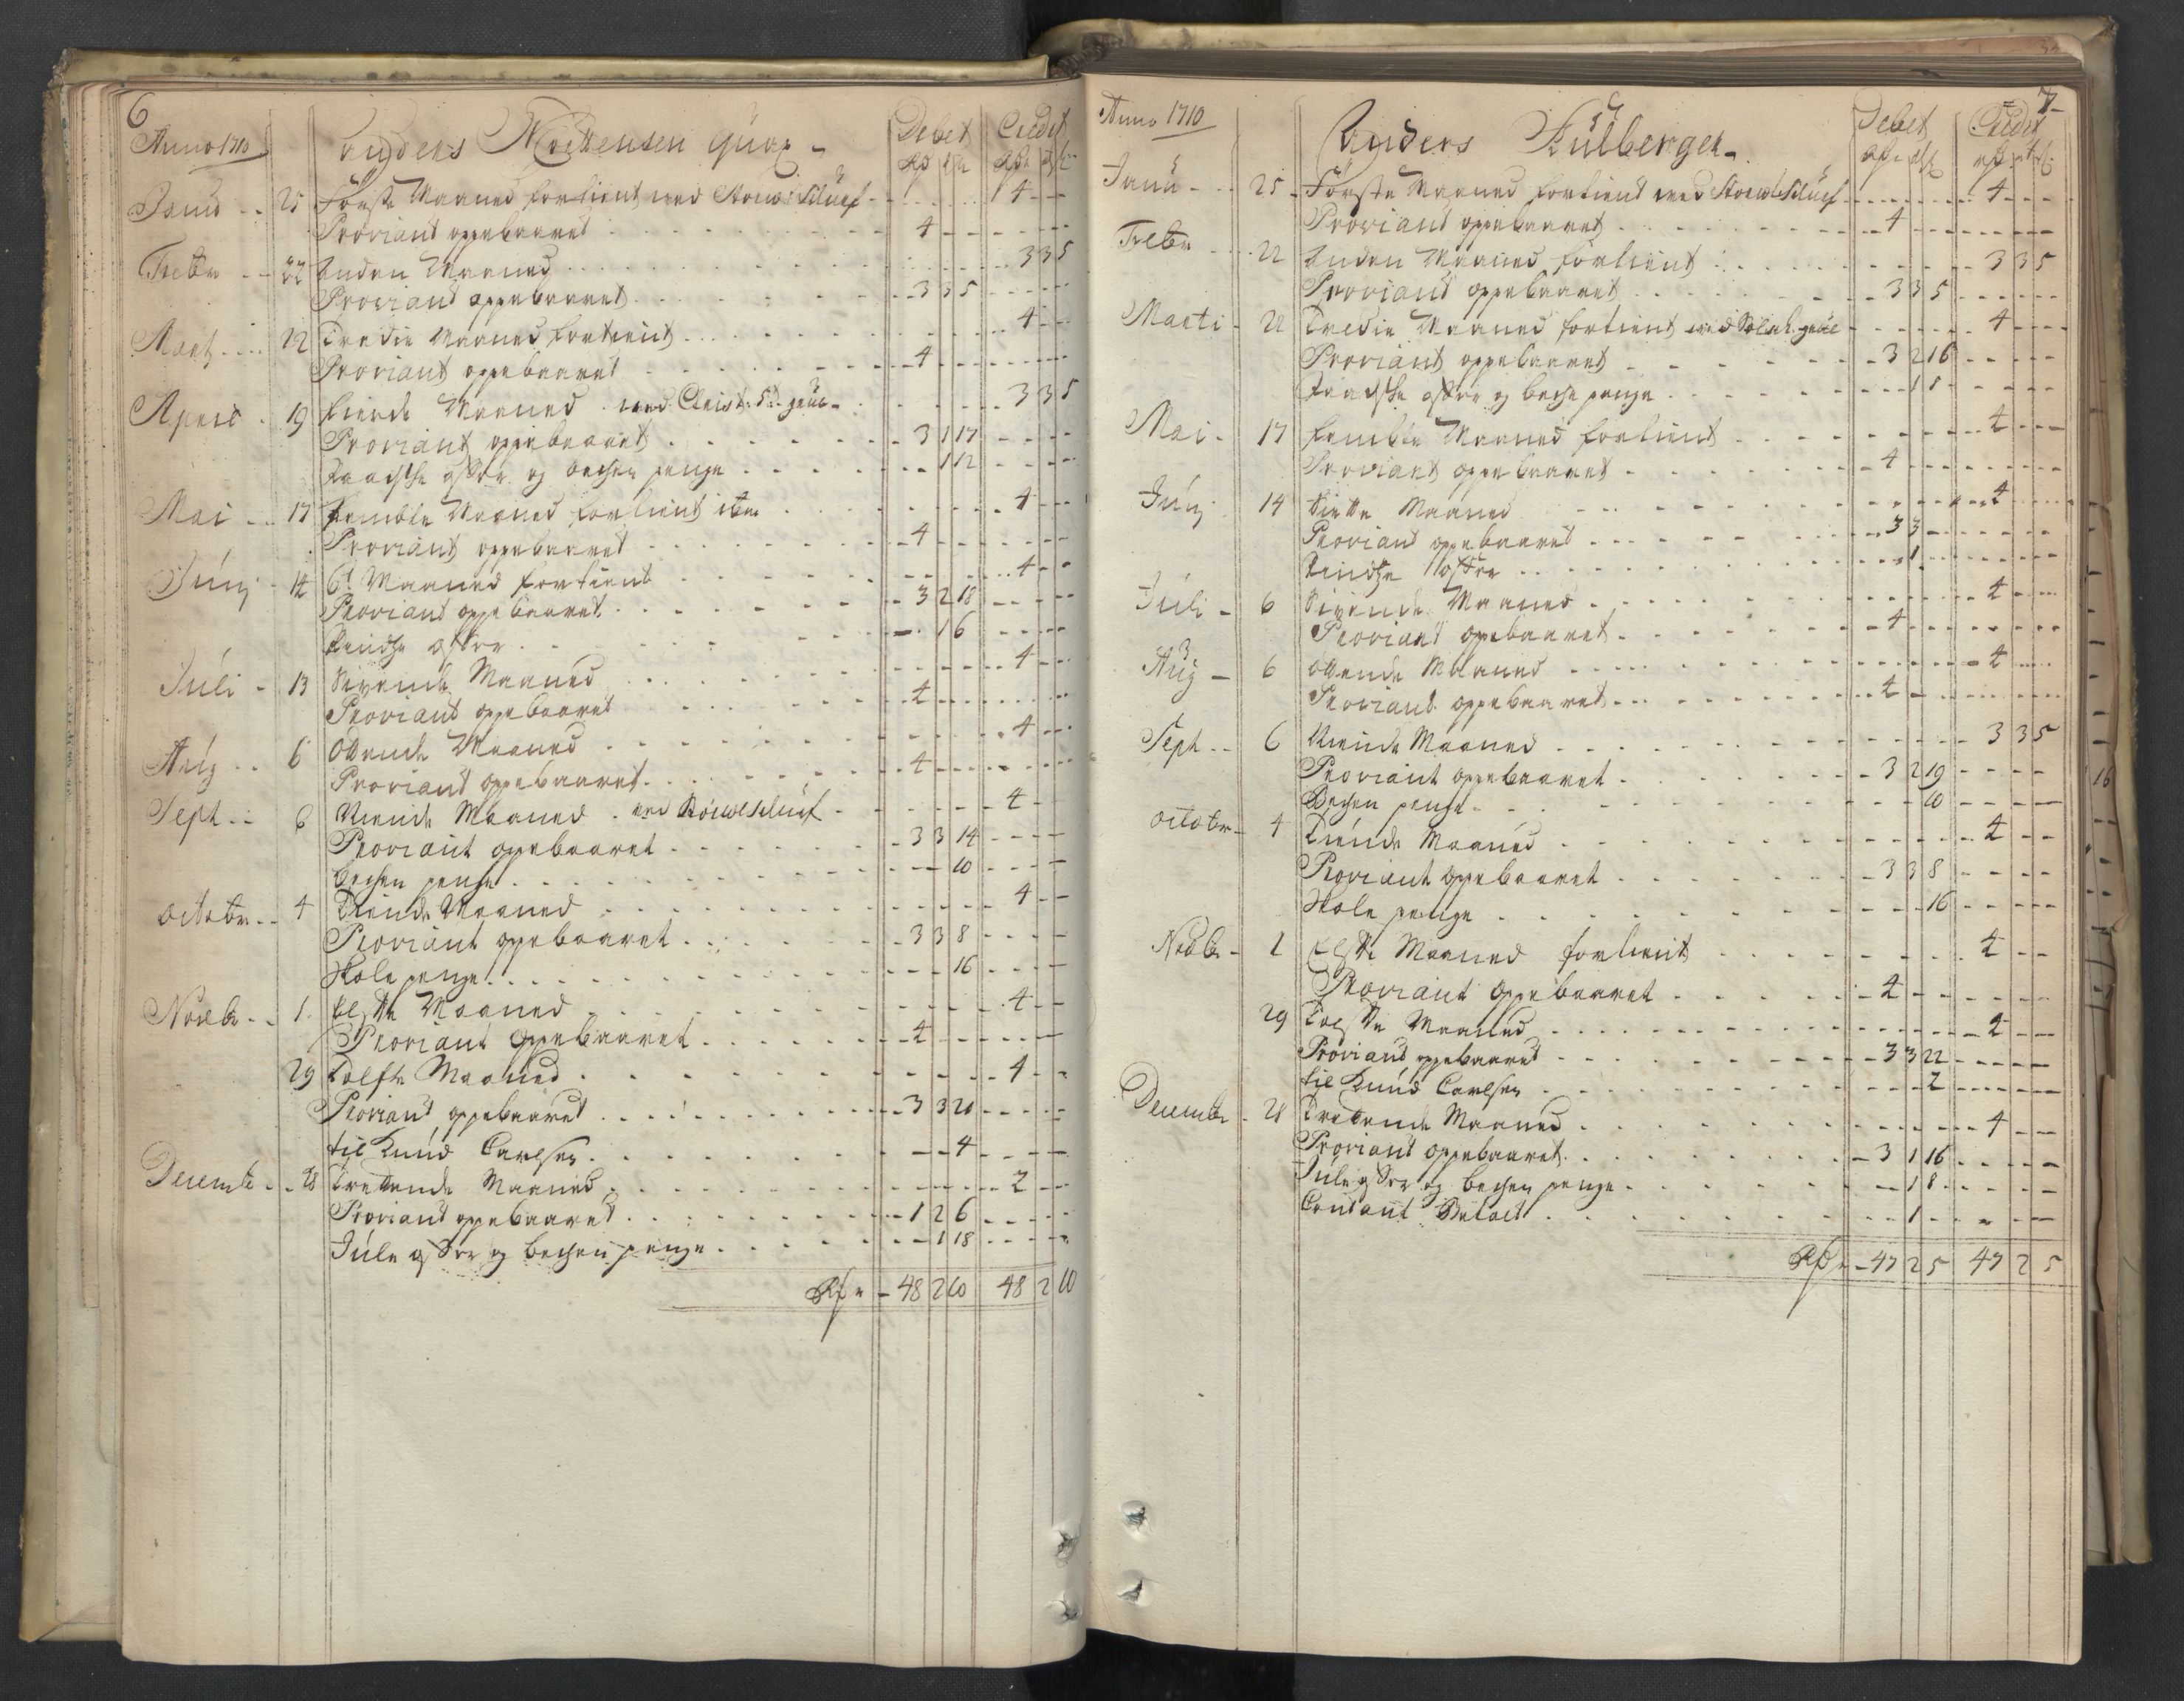 6
Anno 1710
Anders Mortensen Quar -
Debet Credit
Janu - - 25 Förste Maaned fortient ved Storw: Schüef - 4 - -
Proviant oppebaaret - 4 - -
Febr - - 22 Anden Maaned - 3 3 5
Proviant oppebaaret - 3 3 5
Mart - - 22 Tredie Maaned fortient - 4 - -
Proviant oppebaaret - 4 - -
April - 19 fierde Maaned ved Christ: grüb - 3 3 5
Proviant oppebaaret - 3 1 17
offer og becken penge - 1 12
Mai - - 17 fembte Maaned fortient - 4 - -
Proviant oppebaaret - 4 - -
Junj - 14 6t Maaned fortient - 4 - -
Proviant oppebaaret - 3 2 18
Pindtze offer - 1 6
Juli - 13 Sivende Maaned - 4 - -
Proviant oppebaaret - 4 - -
Aug - - 6 Ottende Maaned - 4 - -
Proviant oppebaaret - 4 - -
Sept - - 6 Niende Maaned - ved Schüef - 4 -
Proviant oppebaaret - 3 3 14
becken penge - 10
octobr - - 4 Tiende Maaned - 4 - -
Proviant oppebaaret - 3 3 8
Skole penge - 16
Novbr - - 1 Elfte Maaned - 4 - -
Proviant oppebaaret - 4 - -
29 Tolfte Maaned - 4 - -
Proviant oppebaaret - 3 3 20
til Knud Carlsen - 4
Decembr - - 28 Trettende Maaned - 2 - -
Proviant oppebaaret - 1 2 6
Jule offer og becken penge - 1 18
Rdr - 48 2 10 48 2 10
7
Anno 1710
Anders Kulberget -
Debet Credit
Janu - - 25 - Förste Maaned fortient ved Schüef - 4 - -
Proviant oppebaaret - 4 - -
Febr - - 22 Anden Maaned fortient - 3 3 5
Proviant oppebaaret - 3 3 5
Marti - 22 Tredie Maaned fortient ved grüe - 4 - -
Proviant oppebaaret - 3 2 16
offer og becken penge - 1 8
Mai - 17 fembte Maaned fortient - 4 - -
Proviant oppebaaret - 4 - -
Junj 14 Siette Maaned - 4 - -
Proviant oppebaaret - 3 3 -
Pindtze offer - 1 -
Juli - 6 Sivende Maaned - 4 - -
Proviant oppebaaret - 4 - -
Aug - 6 Ottende Maaned - 4 - -
Proviant oppebaaret - 4 - -
Sept - - 6 Niende Maaned - 3 3 5
Proviant oppebaaret - 3 2 19
Becken penge - 10
octobr - 4 Tiende Maaned - 4 - -
Proviant oppebaaret - 3 3 8
Skole penge - 16
Novbr - 1 Elfte Maaned fortient - 4 - -
Proviant oppebaaret - 4 - -
29 Tolfte Maaned - 4 - -
Proviant oppebaaret - 3 3 22
til Knud Carlsen - 2
Decembr - 28 Trettende Maaned - 4 - -
Proviant oppebaaret - 3 1 16
Jule offer og becken penge - 1 8
Contant Betalt - 1 -
Rdr - 47 2 5 47 2 5
16